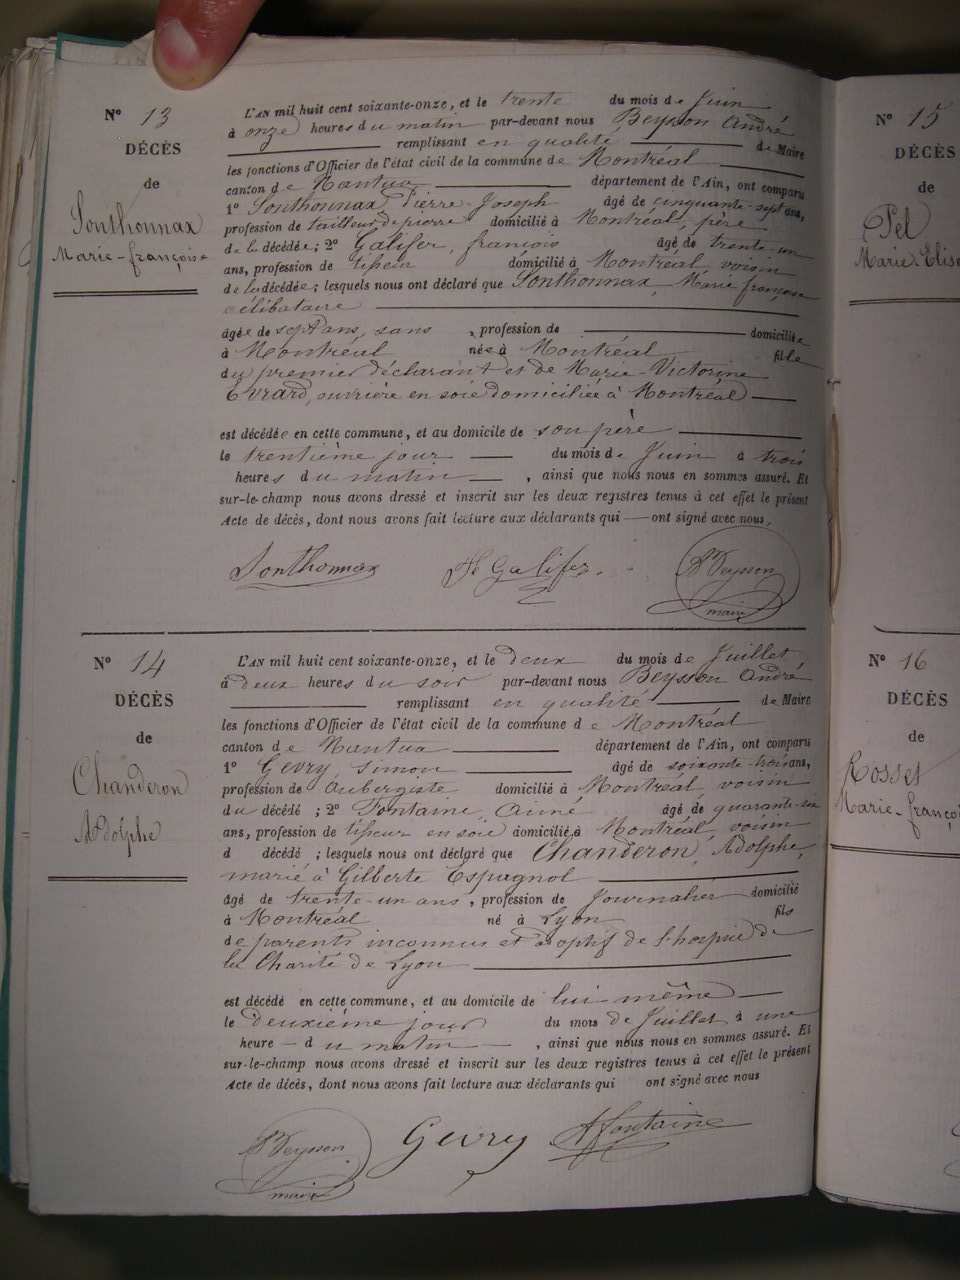 N° 13
DÉCÈS
de
Sonthonnax
Marie-françoise
L'AN mil huit cent soixante-onze, et le trente du mois de Juin
à onze heures du matin par-devant nous Beysson André
remplissant en qualité de Maire
les fonctions d'Officier de l'état civil de la commune de Montréal
canton de Nantua département de l'Ain, ont comparu
1° Sonthonnax Pierre-Joseph âgé de cinquante-sept ans,
profession de tailleur de pierre domicilié à Montréal, père
de la décédée ; 2° Galifer, françois âgé de trente-un
ans, profession de tisseur domicilié à Montréal voisin
de la décédée ; lesquels nous ont déclaré que Sonthonnax, Marie françoise
célibataire
âgée de sept ans, sans , profession de domiciliée
à Montréal née à Montréal fille
du premier déclarant et de Marie-Victorine
Evrard, ouvrière en soie domiciliée à Montréal
est décédée en cette commune, et au domicile de son père
le trentième jour du mois de Juin à trois
heures du matin , ainsi que nous nous en sommes assuré. Et
sur-le-champ nous avons dressé et inscrit sur les deux registres tenus à cet effet le présent
Acte de décès, dont nous avons fait lecture aux déclarants qui ont signé avec nous.
Sonthonnax fs Galifer ABeysson
maire
N° 14
DÉCÈS
de
Chanderon
Adolphe
L'AN mil huit cent soixante-onze, et le deux du mois de Juillet
à deux heures du soir par-devant nous Beysson André
remplissant en qualité de Maire
les fonctions d'Officier de l'état civil de la commune de Montréal
canton de Nantua département de l'Ain, ont comparu
1° Gevry, Simon âgé de soixante-trois ans,
profession de Aubergiste domicilié à Montréal voisin
du décédé ; 2° Fontaine, Aimé âgé de quarante-six
ans, profession de tisseur en soie domicilié à Montréal, voisin
d décédé ; lesquels nous ont déclaré que Chanderon, Adolphe,
marié à Gilberte Espagnol
âgé de trente-un ans , profession de Journalier domicilié
à Montréal né à Lyon fils
de parents inconnus et adoptif de l'hospice de
la Charité de Lyon
est décédé en cette commune, et au domicile de lui-même
le deuxième jour du mois de Juillet à une
heure du matin , ainsi que nous nous en sommes assuré. Et
sur-le-champ nous avons dressé et inscrit sur les deux registres tenus à cet effet le présent
Acte de décès, dont nous avons fait lecture aux déclarants qui ont signé avec nous
ABeysson Gevry AFontaine
maire
N° 15
DÉCÈS
de
Pel
Marie-Elise
N° 16
DÉCÈS
de
Rosset
Marie-franço